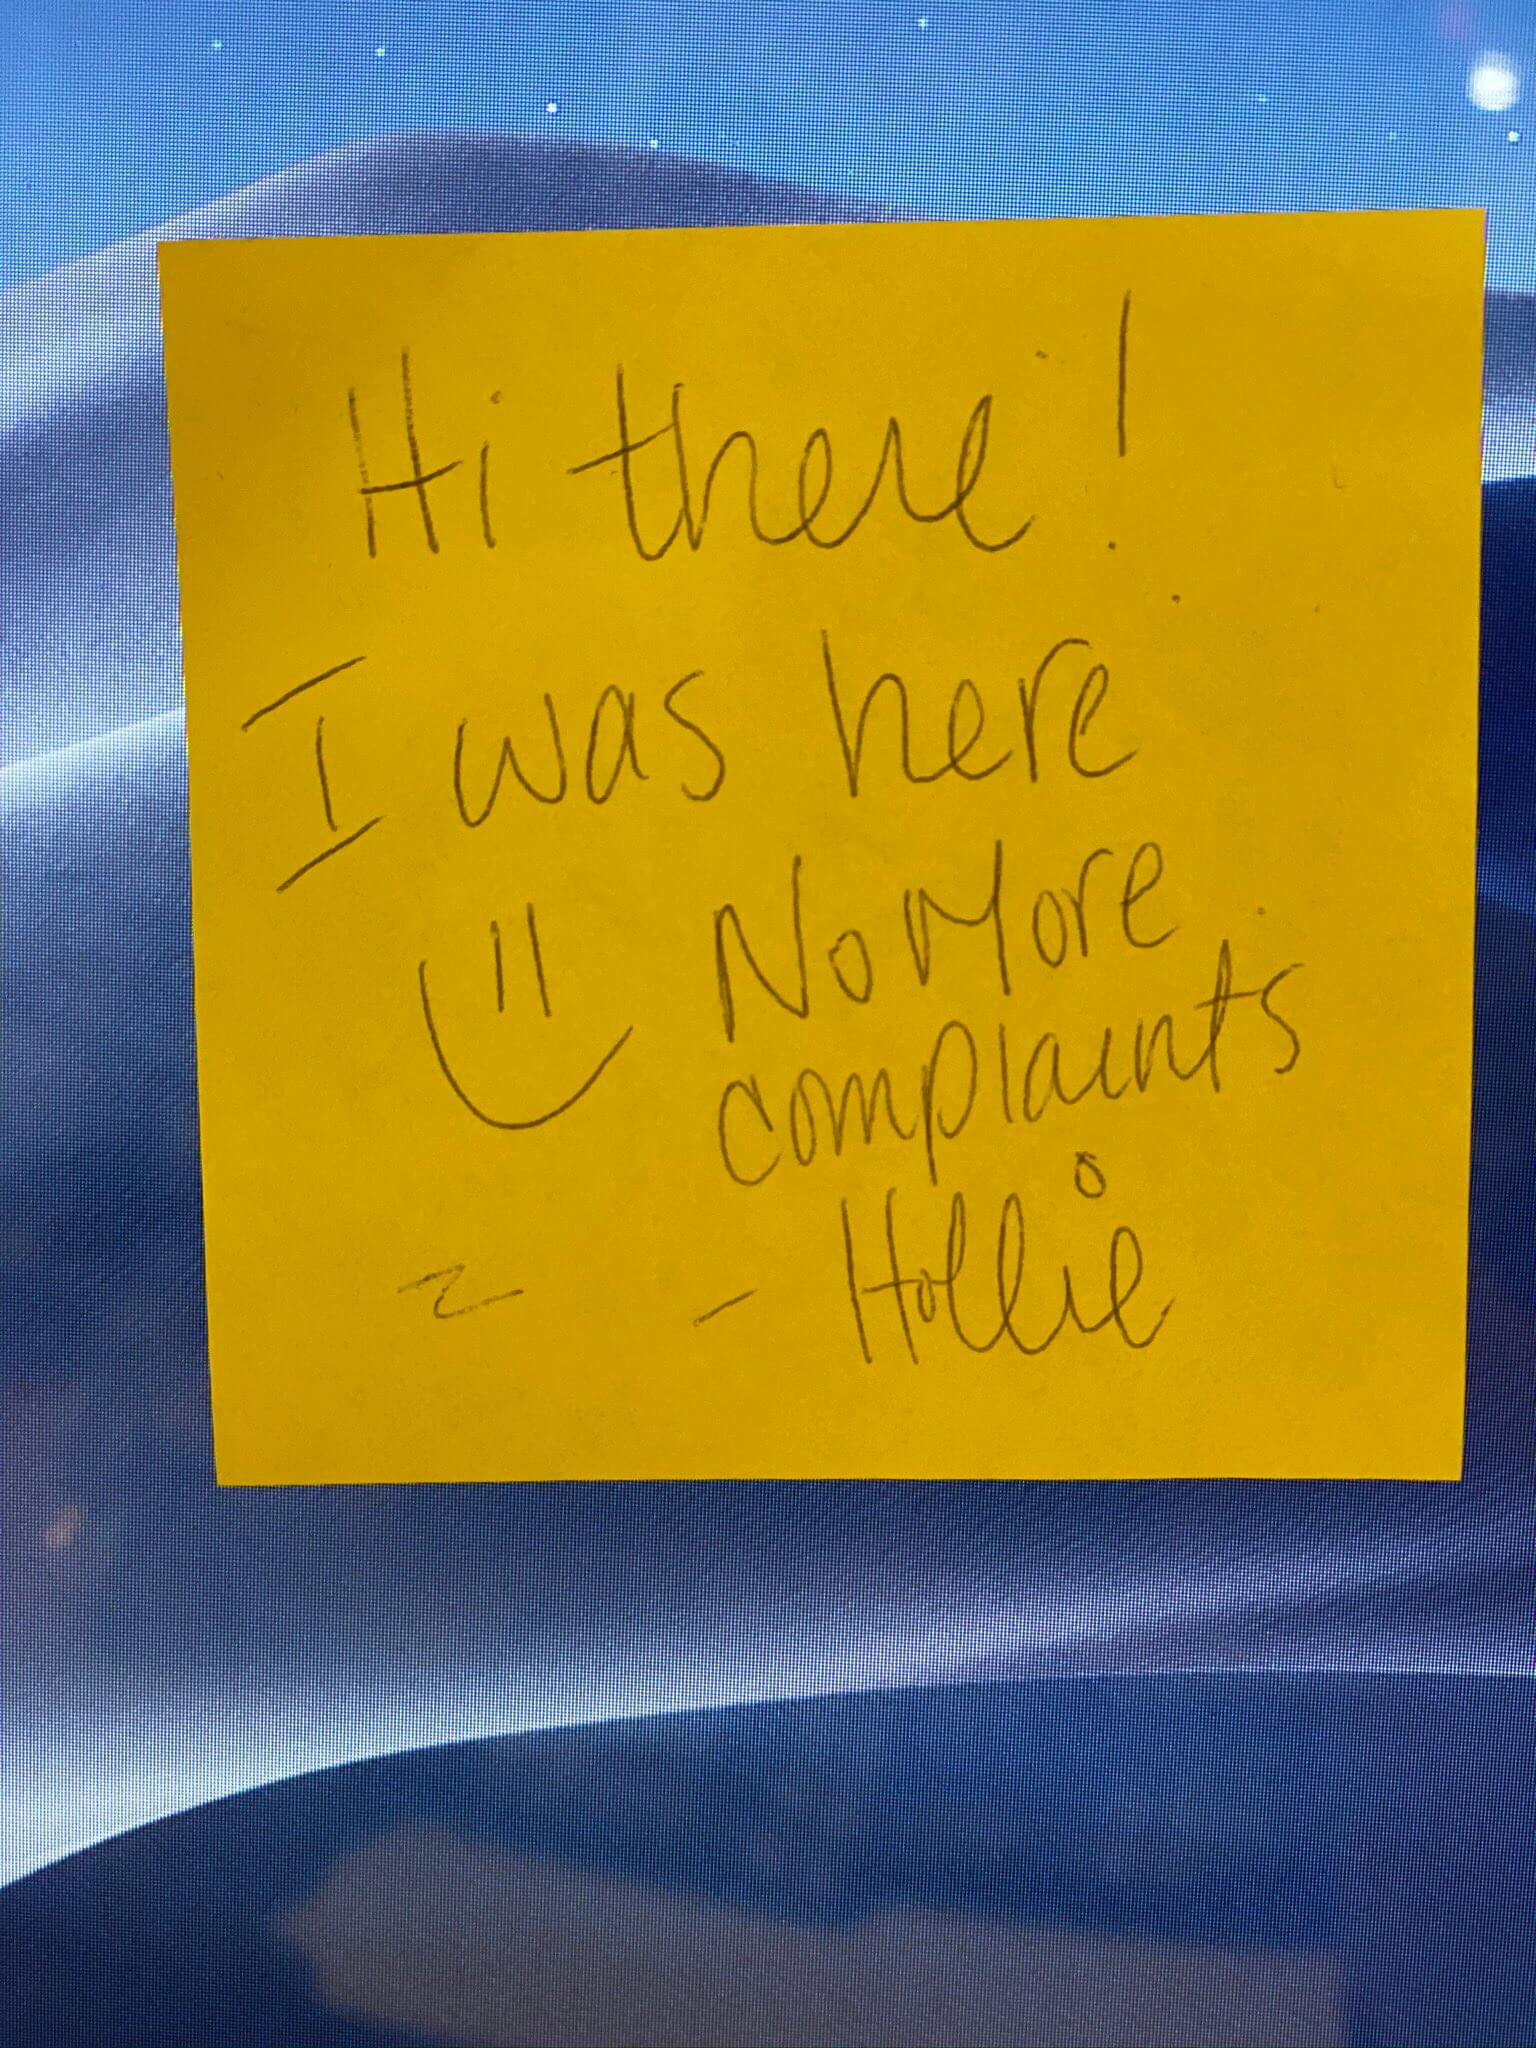 Hi there!
I was here
No More
complaints
- Hollie